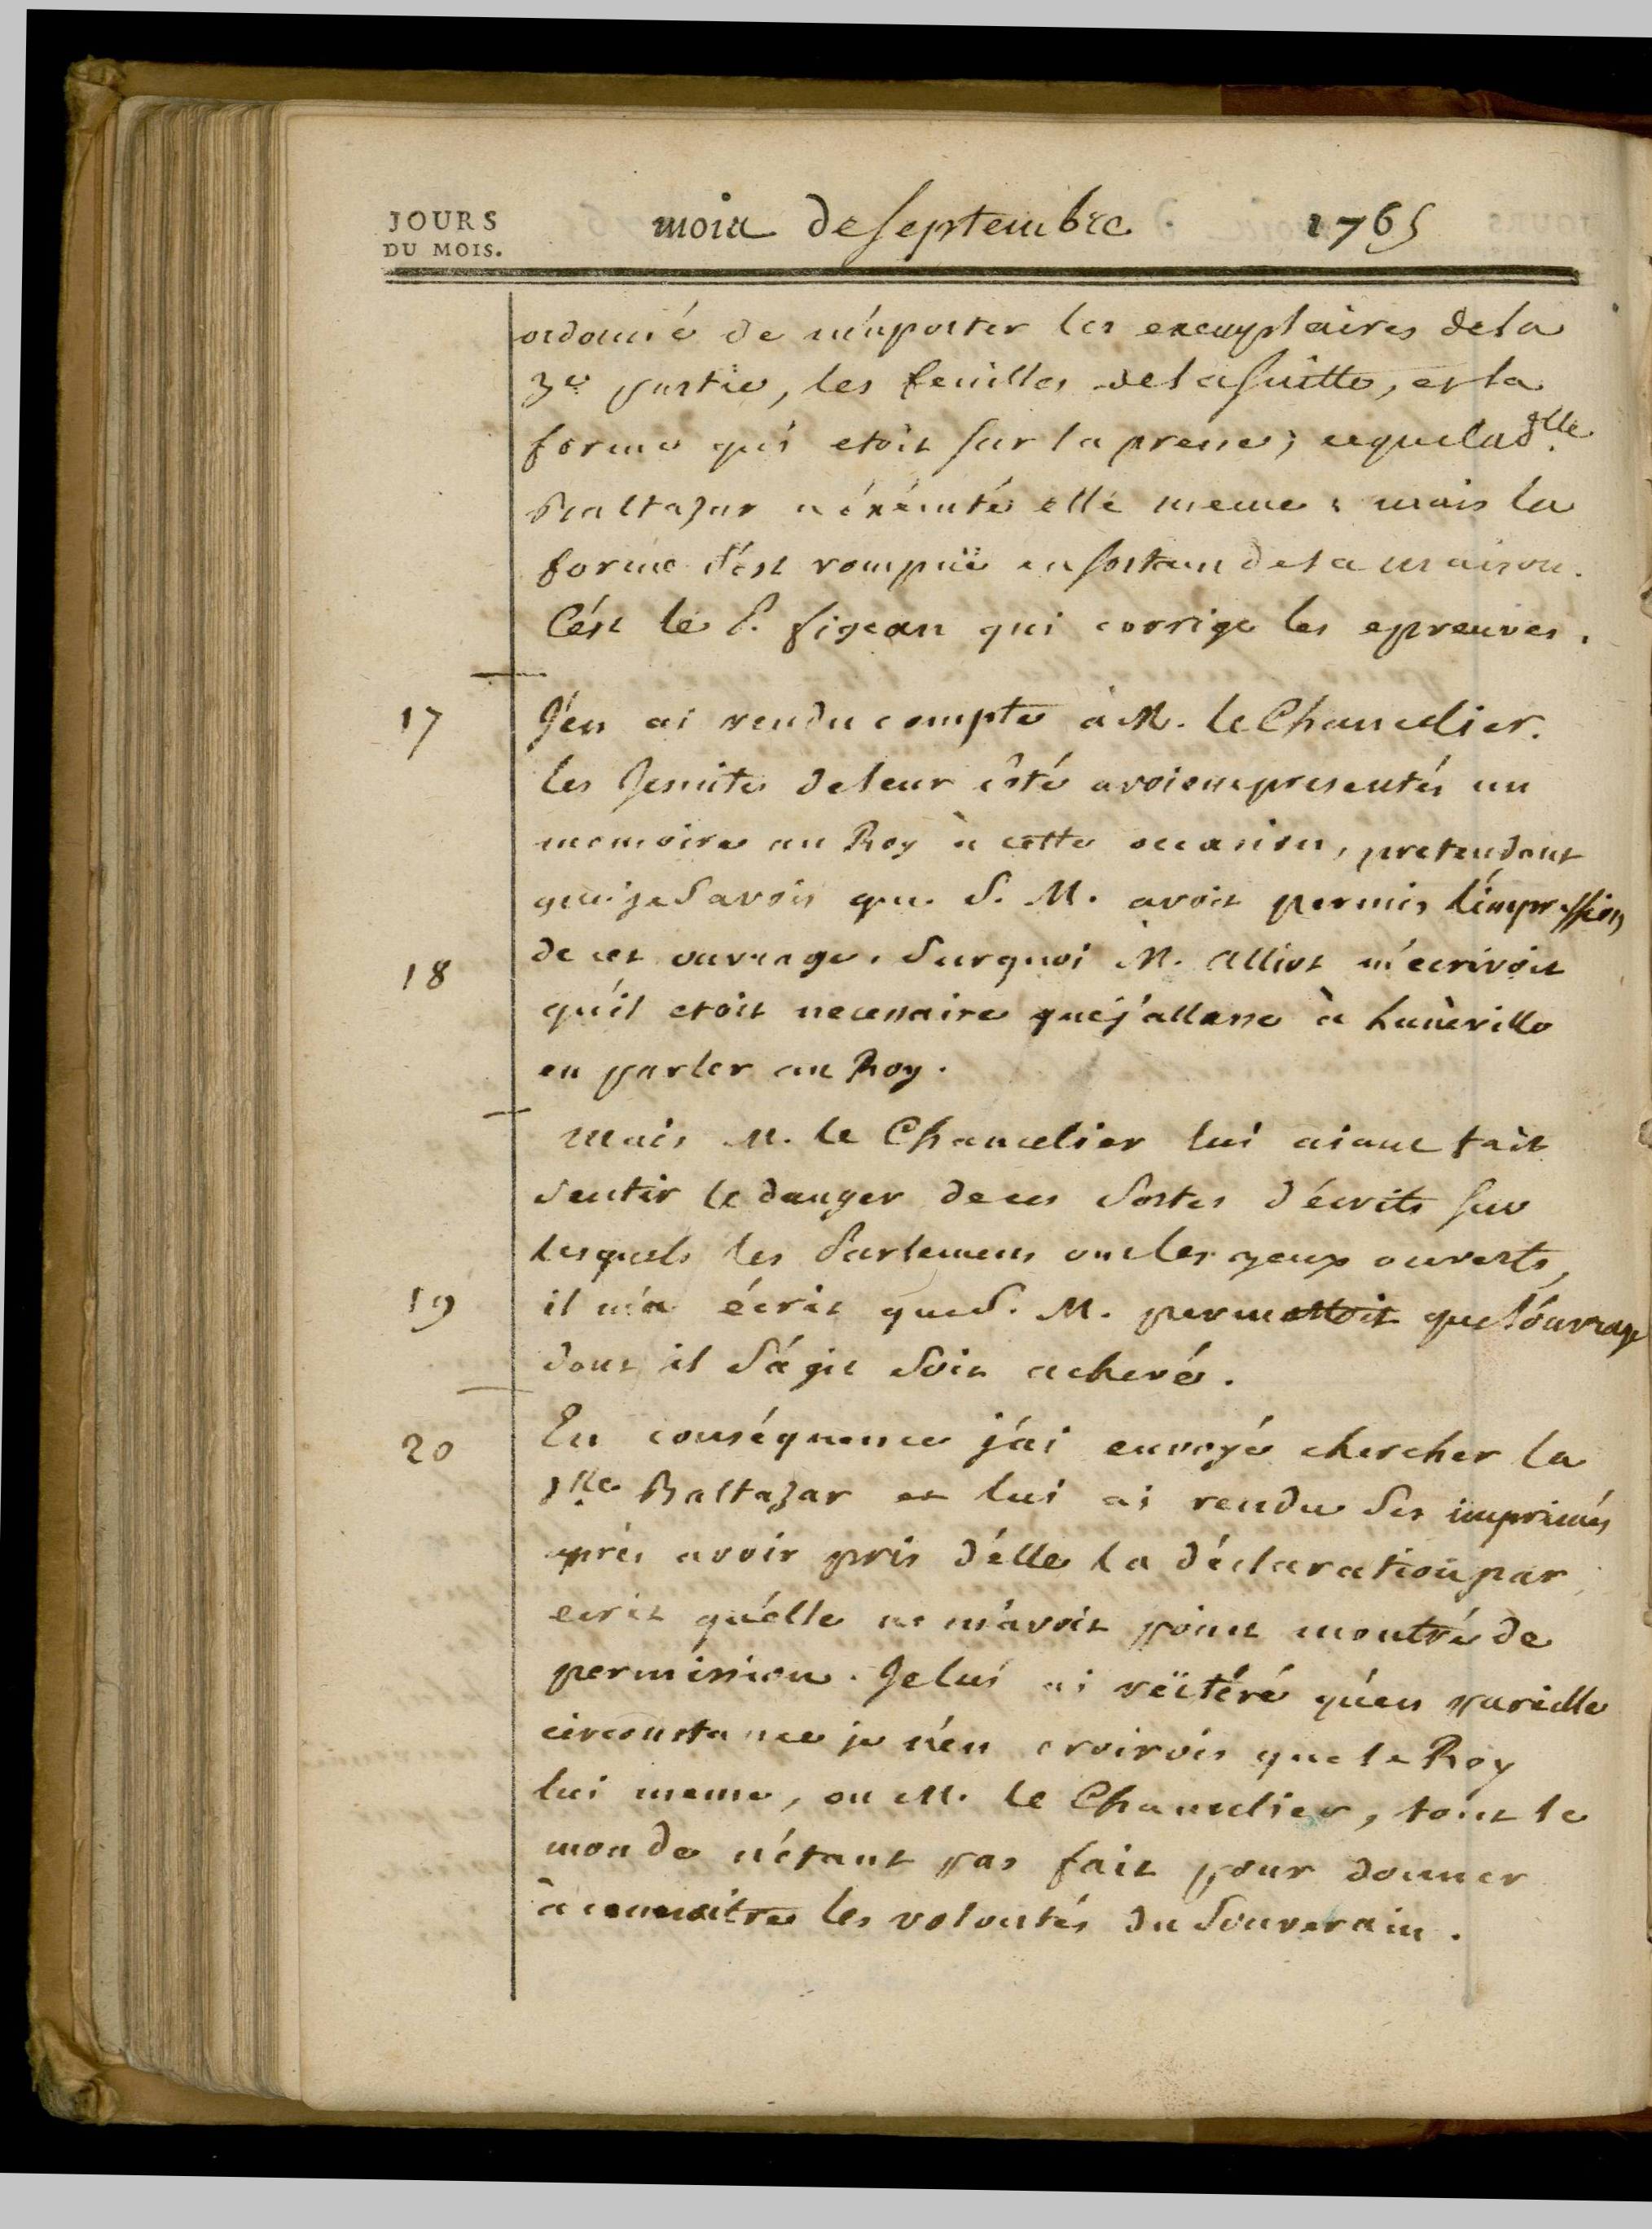 JOURS
DU MOIS.
mois de septembre 1765
ordonné de m'aporter les exemplaires de la
3e partie, les feuilles de la suitte, et la
forme qui etoit sur la presse; ce que la dlle
Baltazar a éxécuté elle meme; mais la
forme s'est rompüe en sortant de sa maison.
C'ést le P. figean qui corrige les epreuves.
17 J'en ai rendu compte à M. le Chancelier.
les Jesuites de leur côté avoient presentés un
memoire au Roy à cette occasion, pretendant
que je savois que S. M. avoit permis l'impression
18 de cet ouvrage. Surquoi M. Alliot m'ecrivoit
qu'il etoit necessaire que j'allasse à Lunèville
en parler au Roy.
Mais M. le Chancelier lui aiant fait
sentir le danger de ces sortes d'écrits sur
lesquels les Parlemens ont les yeux ouverts,
19 il m'a écrit que S. M. permettoit que l'ouvrage
dont il s'agit soit achevé.
20 En conséquence j'ai envoyé chercher la
dlle Baltazar et lui ai rendu ses imprimés
après avoir pris d'elle la déclaration par
ecrit qu'elle ne m'avoit point montré de
permission. Je lui ai réitéré qu'en pareille
circonstance je n'en croirois que le Roy
lui meme, ou M. le Chancelier, tout le
monde n'étant pas fait pour donner
à connoitre les volontés du Souverain.